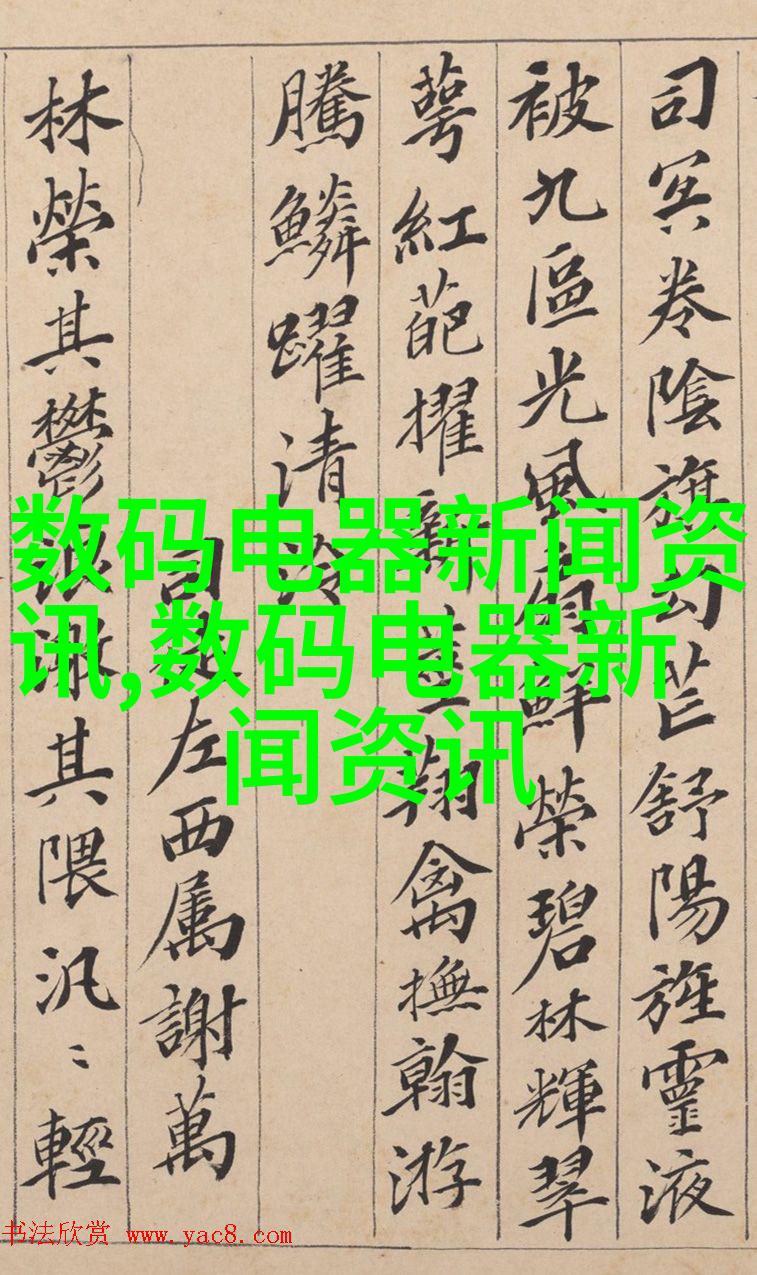 司冥卷陰旗勾芒舒陽旌靈液
被九區光風扇鮮榮碧林輝翠
萼紅葩擢新莖翔禽撫翰游
騰鱗躍清泠
司徒左西属謝萬
林榮其鬱浪激其隈汎〻輕
数码电器新闻资
讯,数码电器新
闻资讯
书法欣赏 www.yac8.com